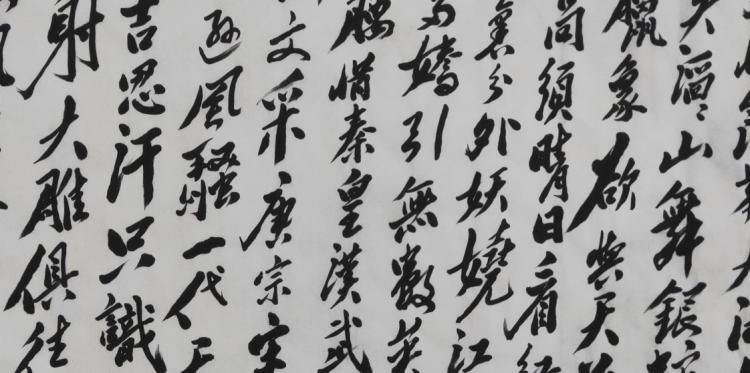 大
滔〻山舞銀
蠟象欲與天
高須晴日看紅
裹分外妖嬈江
多嬌引無數英
腰惜秦皇漢武
文采唐宗宋
遜風騷一代天
吉思汗只識
射大雕俱往